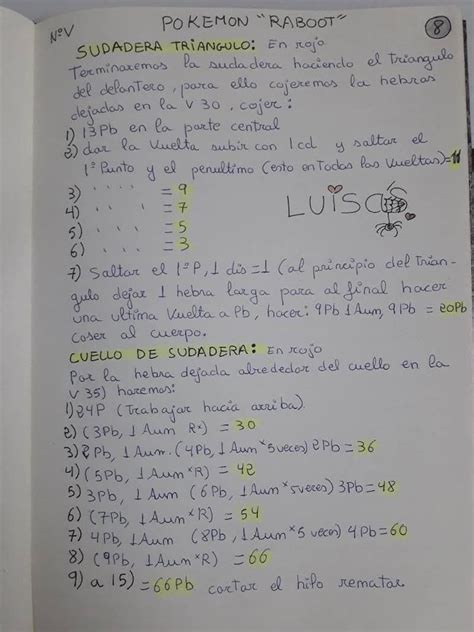 NºV POKEMON "RABOOT" 8
SUDADERA TRIANGULO: En rojo
Terminaremos la sudadera haciendo el triangulo
del delantero, para ello cojeremos la hebras
dejadas en la V 30, cojer:
1) 13Pb en la parte central
2) dar la Vuelta subir con 1cd y saltar el
1º Punto y el penultimo (esto en Todas las Vueltas)=11
3) " " " " = 9
4) " " " " = 7
5) " " " " = 5
6) " " " " = 3
LUISCOS
7) Saltar el 1ºP, 1 dis =1 (al principio del Trian-
gulo dejar 1 hebra larga para al final hacer
una ultima Vuelta a Pb, hacer: 9Pb 1Aum, 9Pb = 20Pb
coser al cuerpo.
CUELLO DE SUDADERA: En rojo
Por la hebra dejada alrededor del cuello en la
V 35) haremos:
1) 24P (Trabajar hacia arriba).
2) (3Pb, 1Aum R*) = 30
3) 2Pb, 1Aum. (4Pb, 1Aum*5veces) 2Pb = 36
4) (5Pb, 1Aum*R) = 42
5) 3Pb, 1Aum (6Pb, 1Aum*5veces) 3Pb = 48
6) (7Pb, 1Aum*R) = 54
7) 4Pb, 1Aum (8Pb, 1Aum*5 veces) 4Pb = 60
8) (9Pb, 1Aum*R) = 66
9) a 15) = 66Pb cortar el hilo rematar